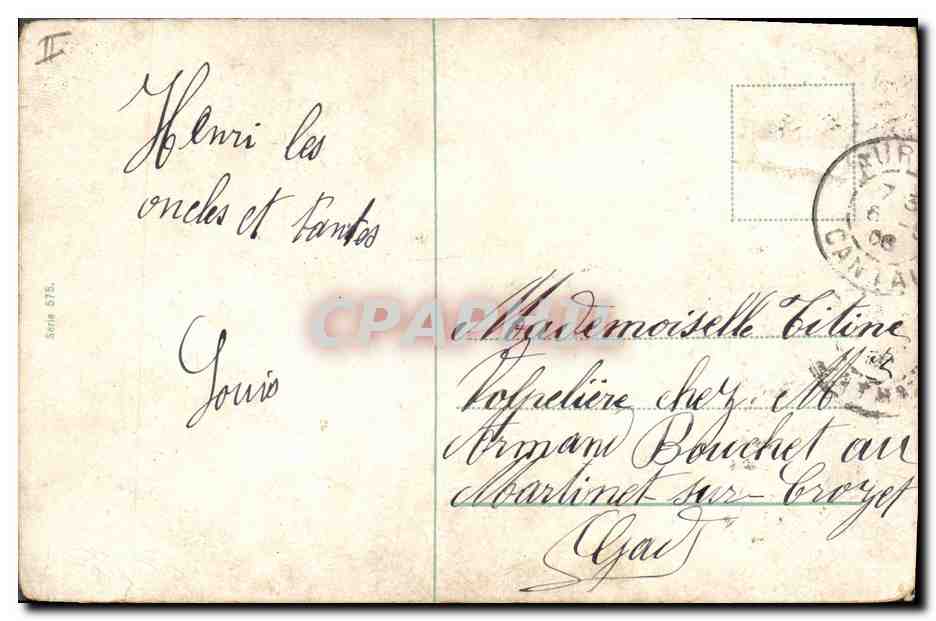 II
Henri les
oncles et tantes
Louis
Serie 575.
CPARAMA
Mademoiselle Titine
Volpelière chez M
Armand Bouchet au
Martinet sur Crozet
(Gard)
AUR
7
6
08
CANTAL